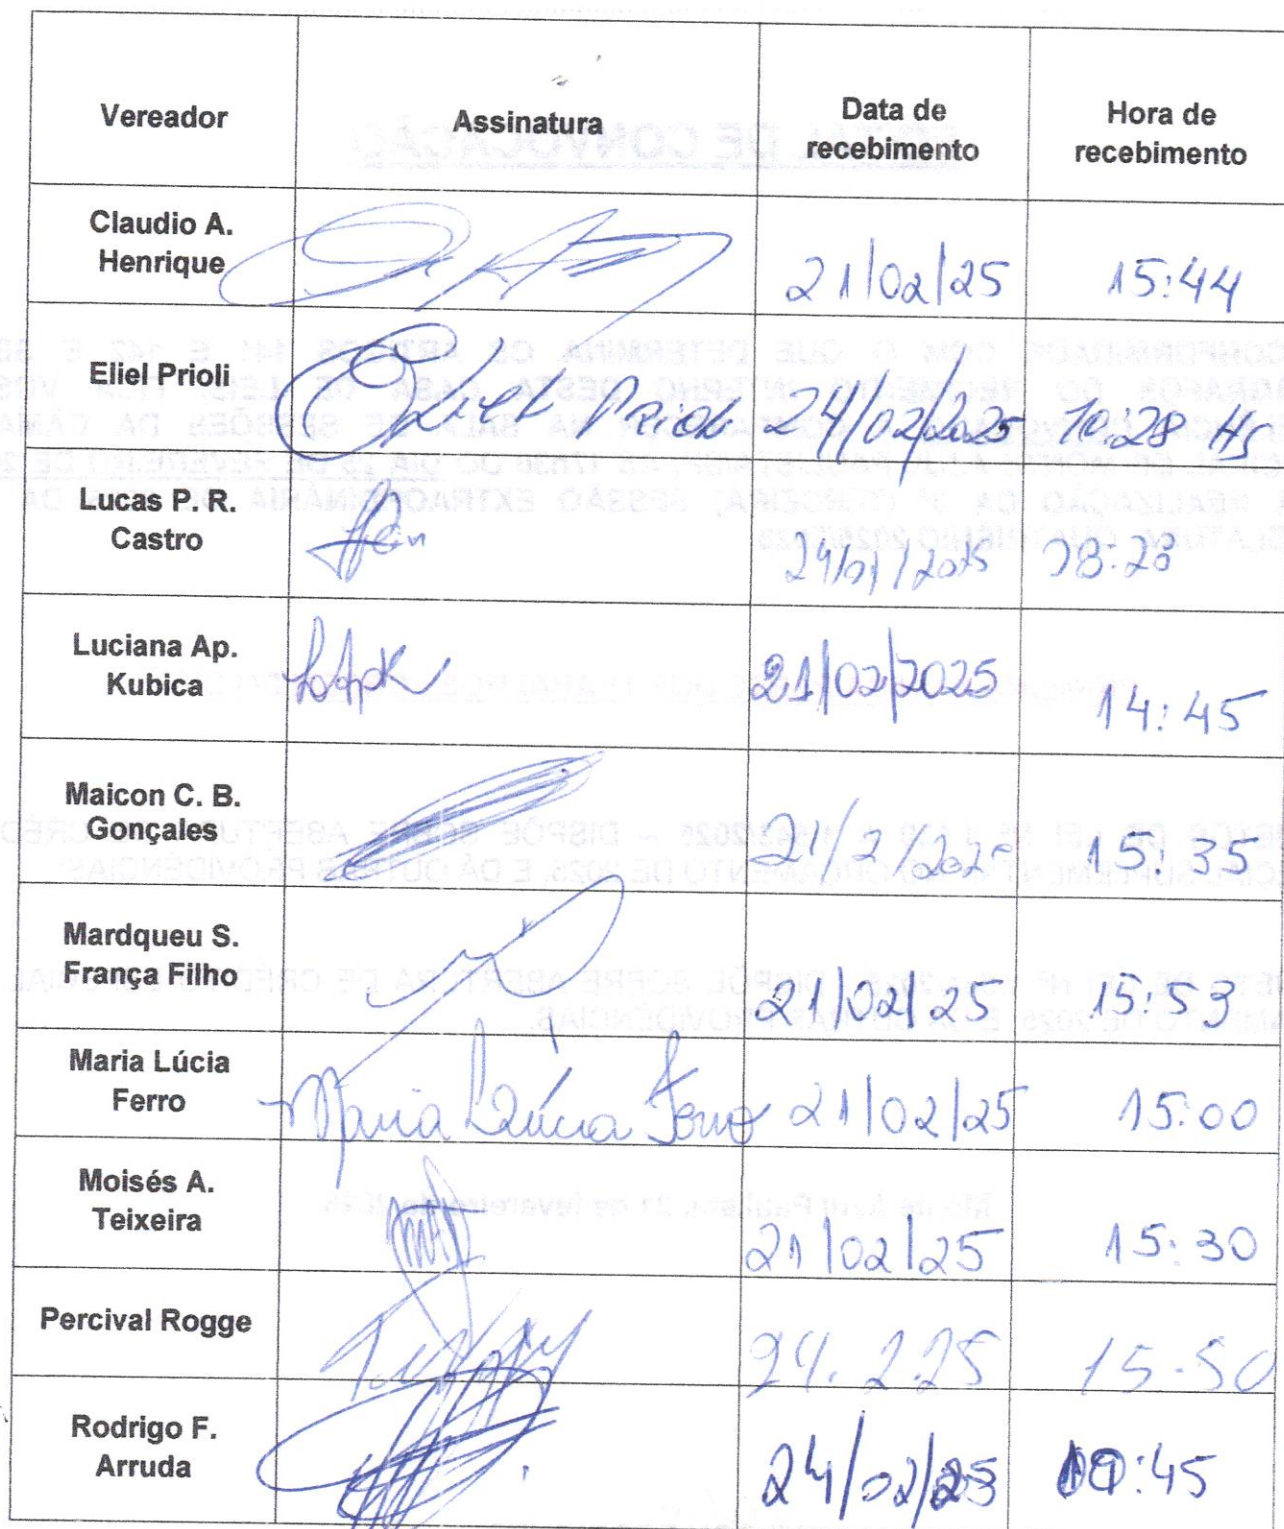 Vereador
Assinatura
Data de
recebimento
Hora de
recebimento
Claudio A.
Henrique
21/02/25
15:44
Eliel Prioli
Eliel Prioli
24/02/2025
10:28 Hs
Lucas P. R.
Castro
08:28
Luciana Ap.
Kubica
21/02/2025
14:45
Maicon C. B.
Gonçales
21/2/2025
15:35
Mardqueu S.
França Filho
21/02/25
15:53
Maria Lúcia
Ferro
Maria Lúcia Ferro
21/02/25
15:00
Moisés A.
Teixeira
21/02/25
15:30
Percival Rogge
24.2.25
15-50
Rodrigo F.
Arruda
24/02/25